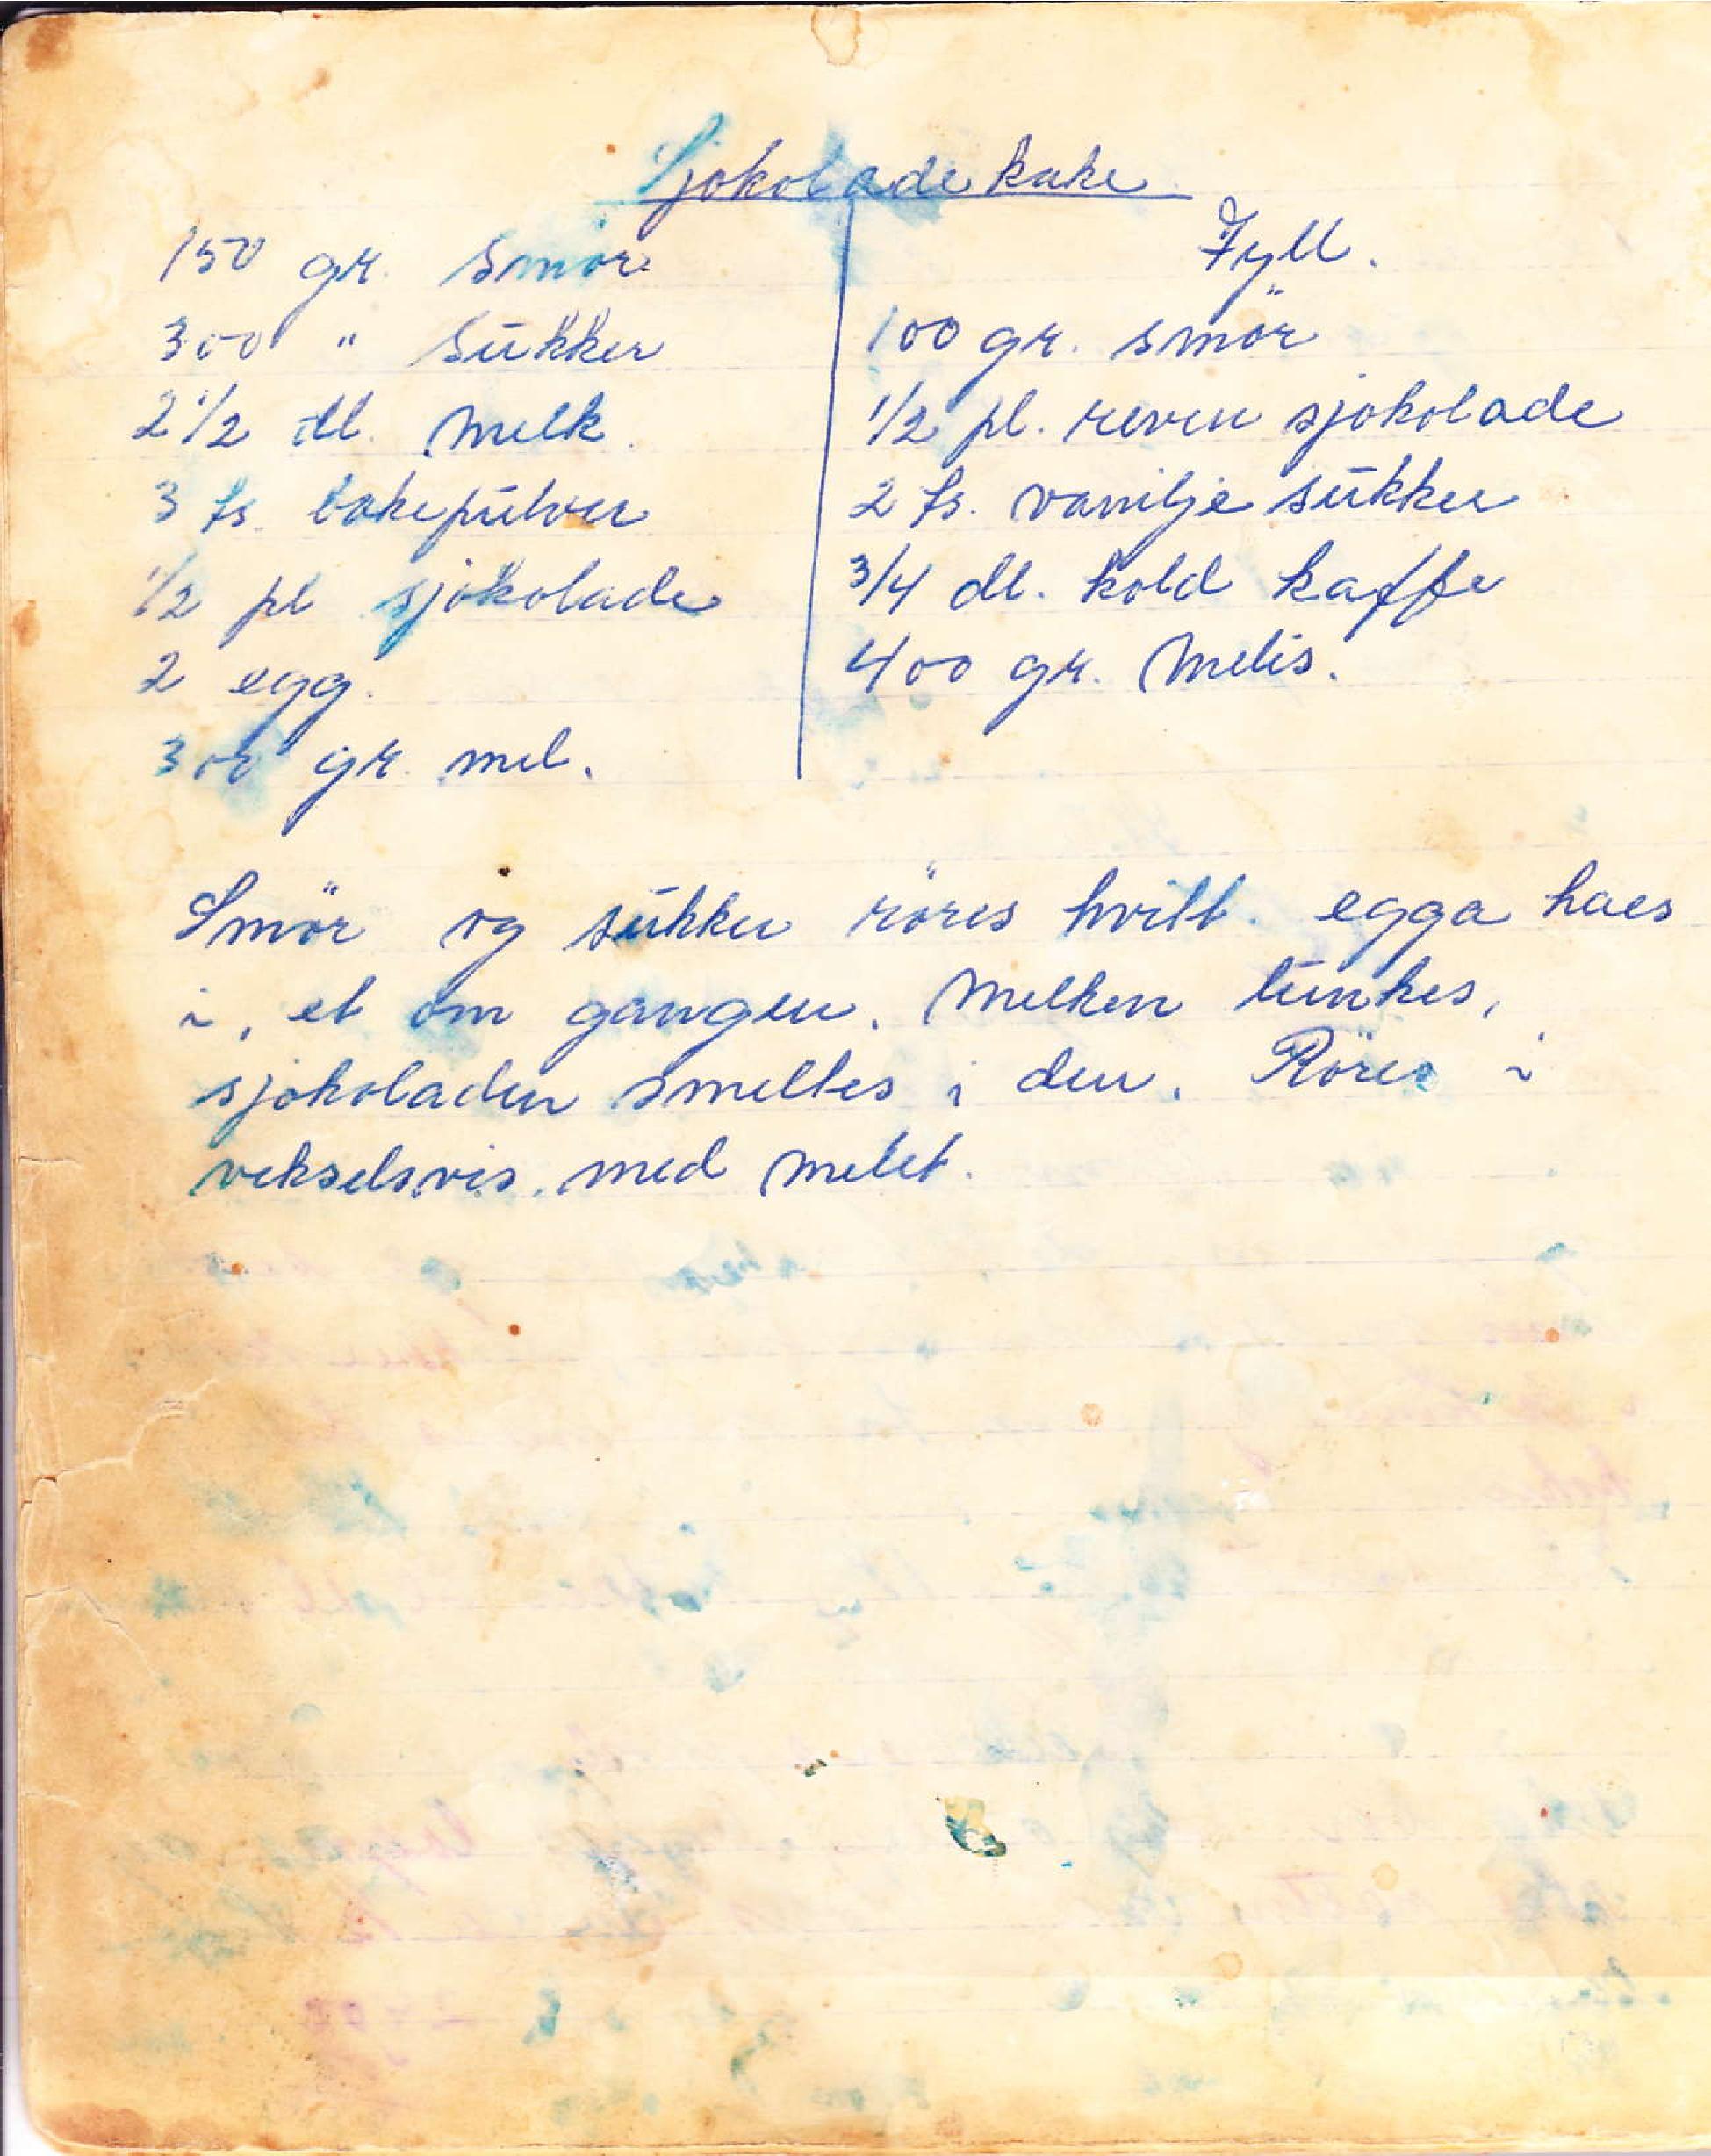 Sjokolade kake
150 gr. smör
300 " sukker
2 1/2 dl. melk.
3 ts. bakepulver
1/2 pl sjokolade
2 egg.
300 gr. mel.
Fyll.
100 gr. smör
1/2 pl. reven sjokolade
2 ts. vanilje sukker
3/4 dl. kold kaffe
400 gr. Melis.
Smör og sukker röres hvitt. egga haes
i, et om gangen. Melken lunkes,
sjokoladen smeltes i den. Röres i
vekselsvis. med melet.